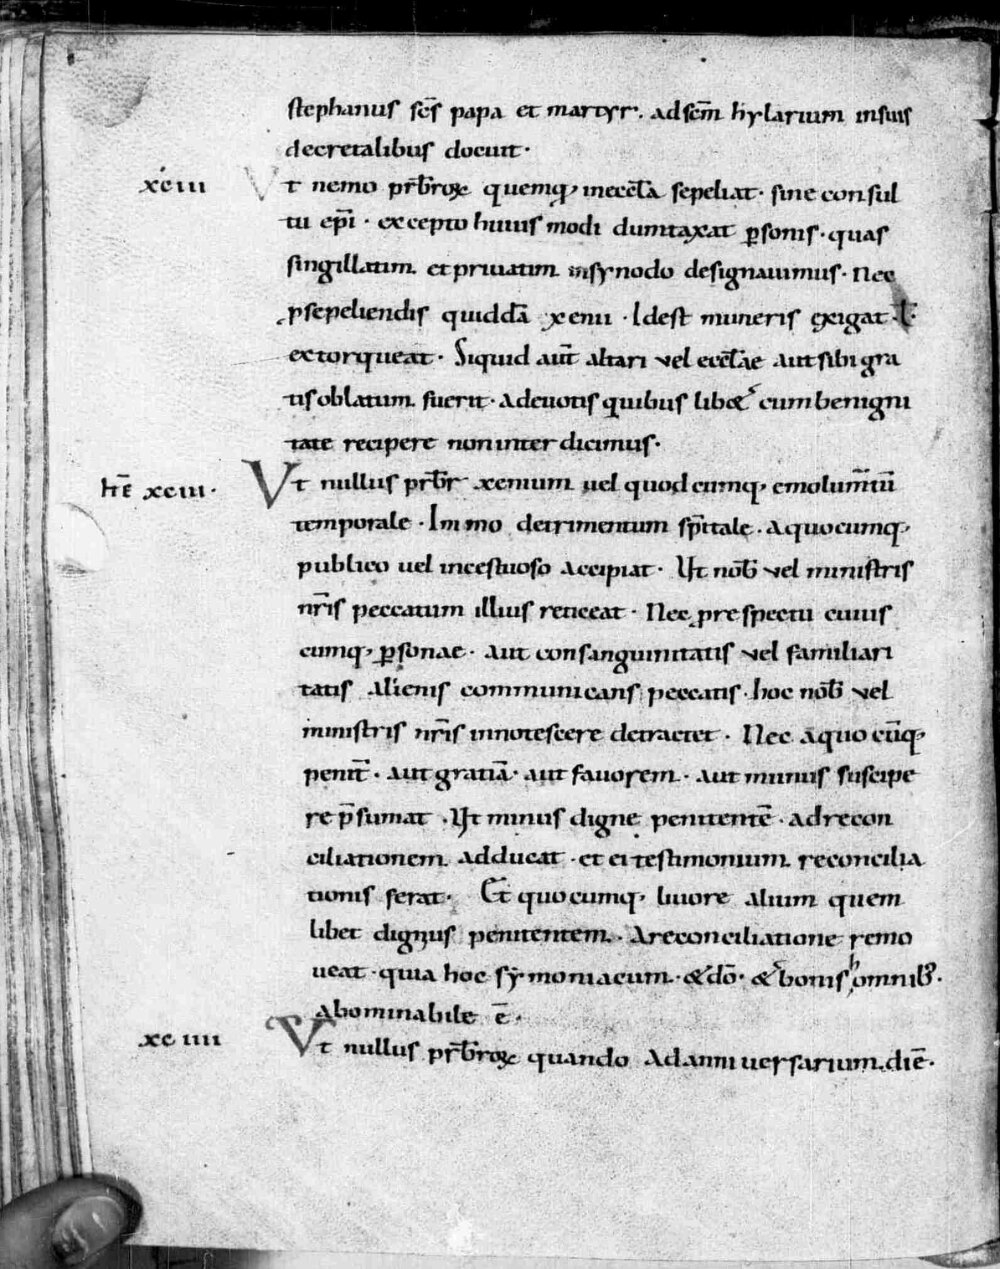 stephanus scs̄ papa et martyr. ad scm̄ hylarium in suis
decretalibus docuit·
xciii Vt nemo prb̄roꝝ quemq; in eccl̄a sepeliat· sine consul
tu ep̄i· excepto huius modi dumtaxat ꝑsonis· quas
singillatim et priuatim in synodo designauimus· Nec
p sepeliendis quiddā xenii· Idest muneris exigat· ł·
extorqueat· Siquid aut̄ altari vel eccl̄ae aut sibi gra
tis oblatum fuerit· a deuotis quibus lib& cum benigni
tate recipere non interdicimus·
hr̄ xciii· Vt nullus prb̄r xenium uel quodcumq; emolum̄tū
temporale· Immo detrimentum sp̄itale· a quocumq;
publico uel incestuoso accipiat· Ut nob̄ vel ministris
nr̄is peccatum illius reticeat· Nec pre spectu cuius
cumq; ꝑsonae· aut consanguinitatis vel familiari
tatis alienis communicans peccatis· hoc nob̄ vel
ministris nr̄is innotescere detractet· Nec a quocūq;
penit̄· aut gratiā· aut fauorem· aut munus suscipe
re p̄sumat· Ut minus digne penitentē· ad recon
ciliationem adducat· et ei testimonium reconcilia
tionis ferat· Et quocumq; liuore alium quem
libet dignus penitentem· A reconciliatione remo
ueat· quia hoc symoniacum· & dō· & bonis hominib;·
abominabile ē·
xciiii Vt nullus prb̄roꝝ quando ad anniuersarium diē·